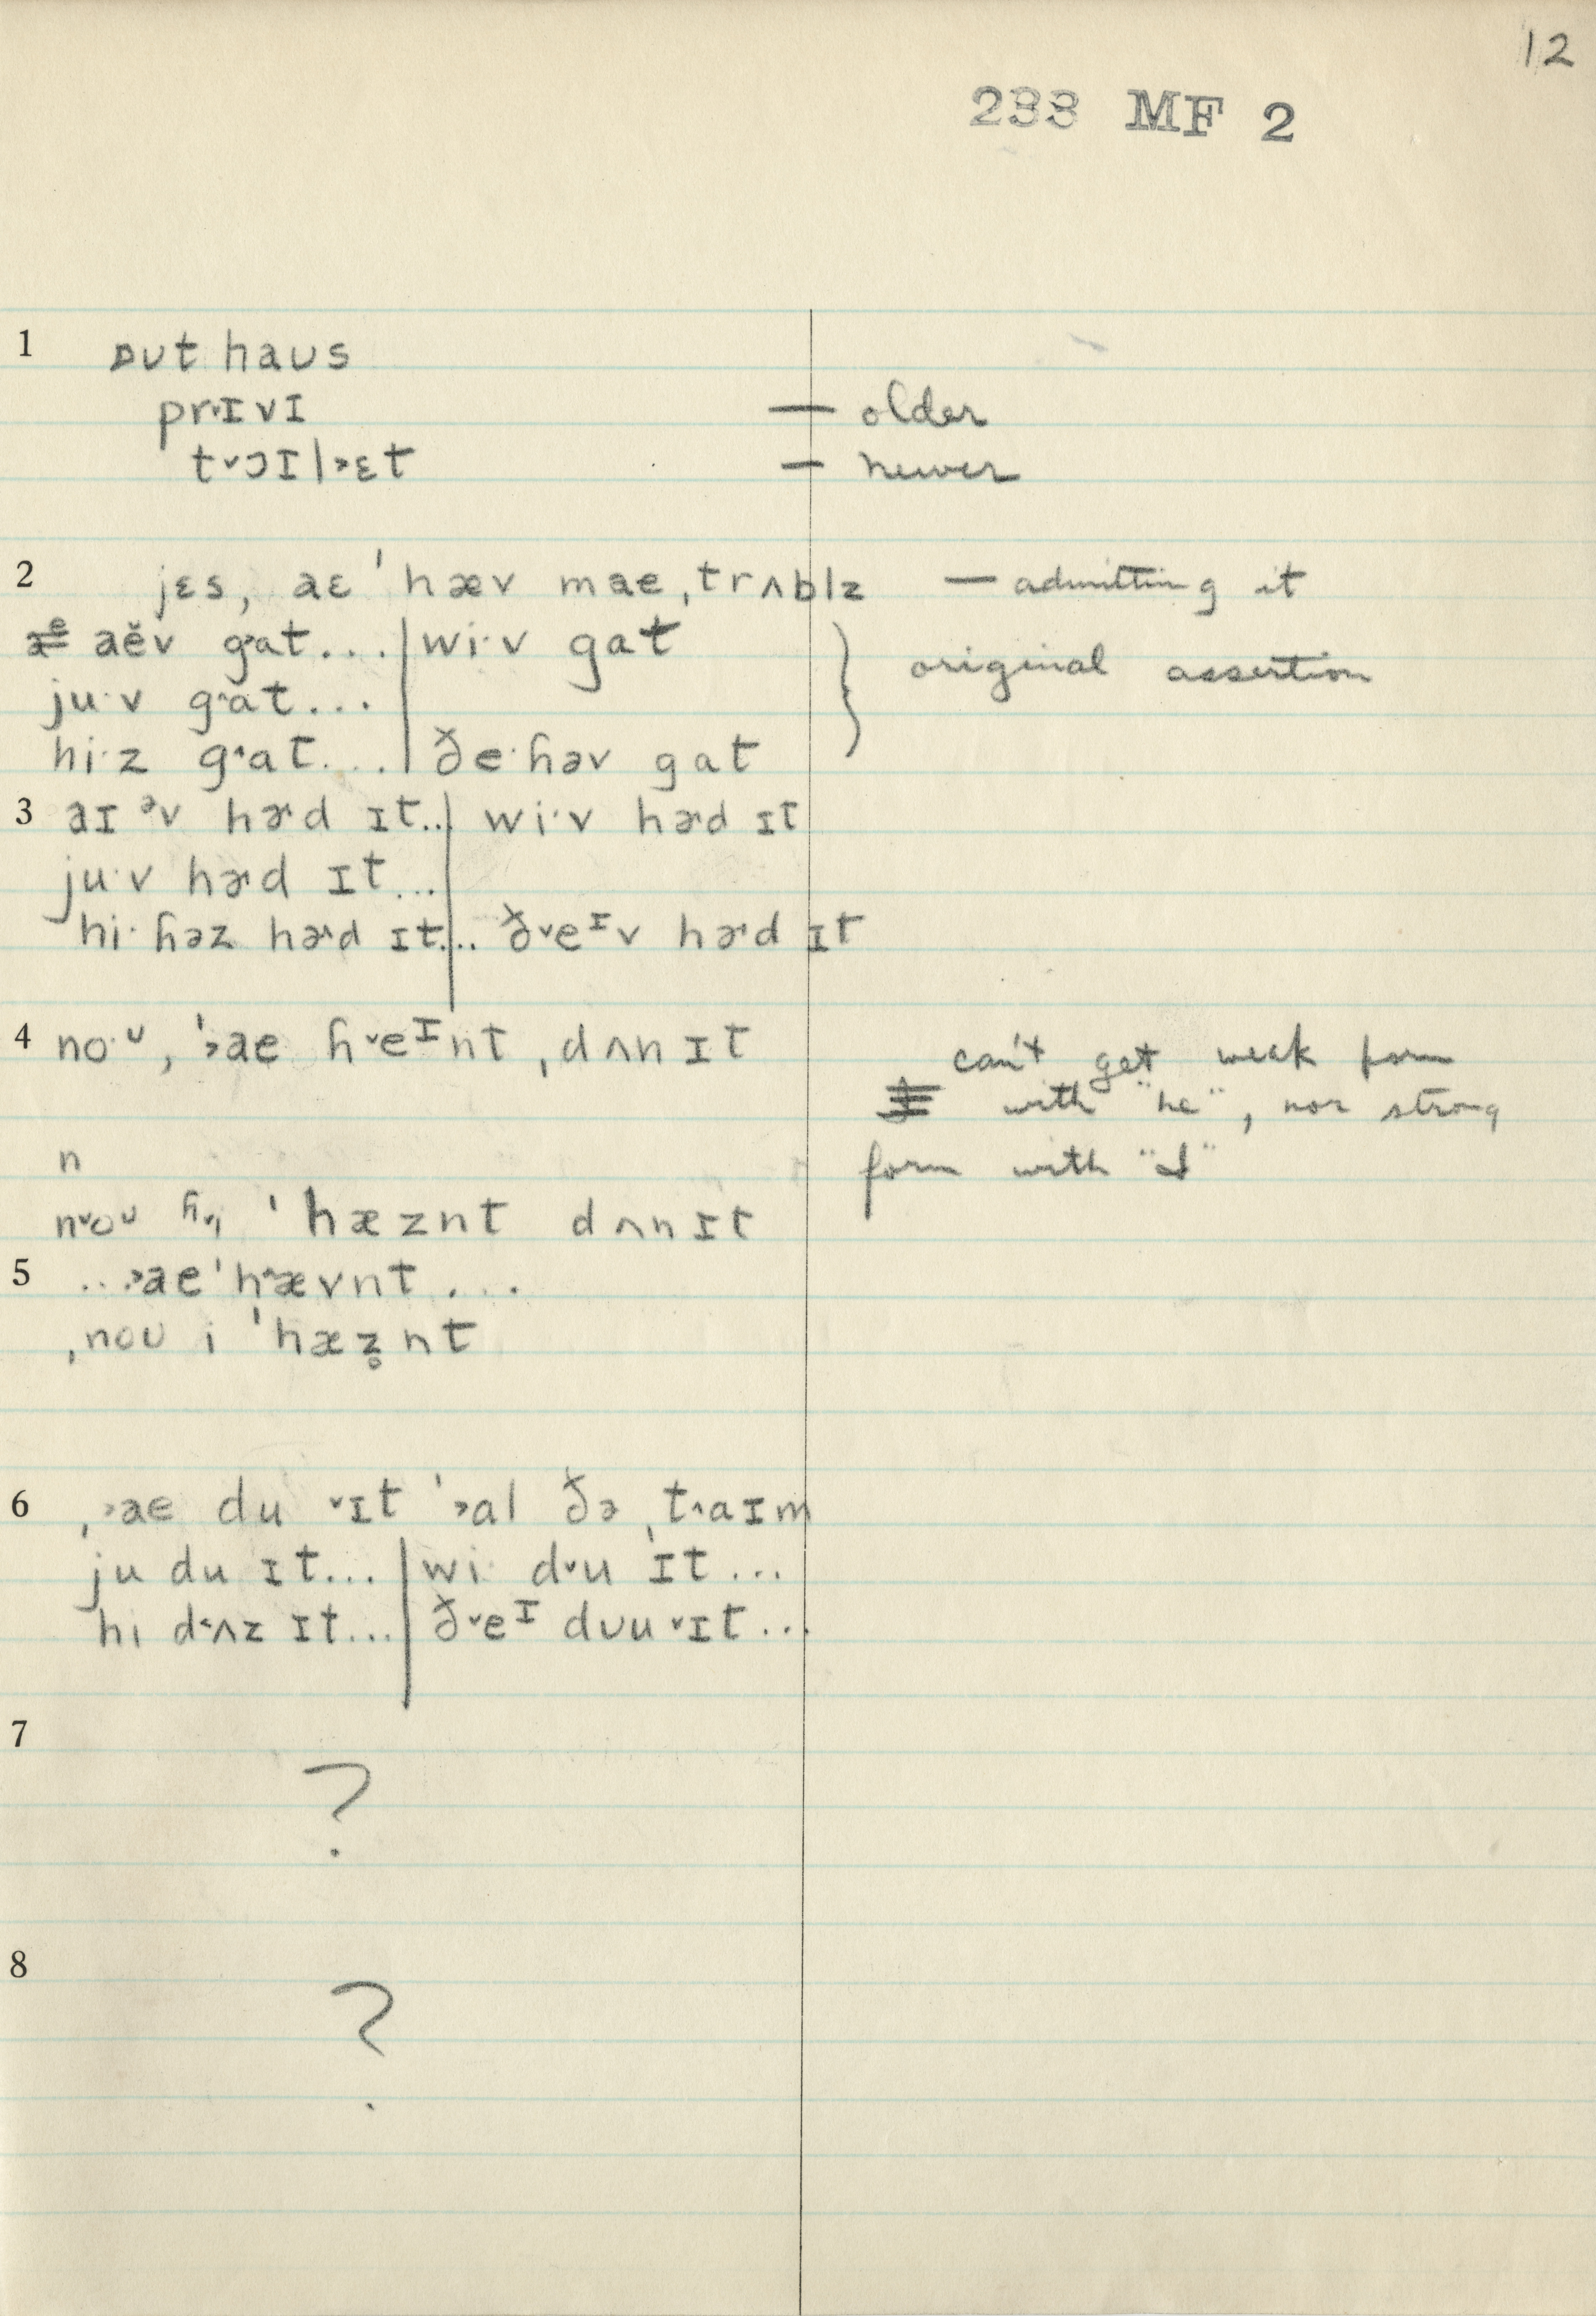 12
233 MF 2
1 ɒut haus
prˑɪvɪ — older
t˅ɔɪl˃ɛt — newer
2 jɛs, aɛ ˈhæv mae ˌtrʌblz — admitting it
aĕv g˄at... | wi·v gat
ju·v g˄at... original assertion
hi·z g˄at.... | ðe·ɦəv gat
3 aɪ ᵊv hɚd ɪt.. | wi·v hɚd ɪt
ju·v hɚd ɪt...
hi· ɦəz hɚd ɪt... | ð˅eᶦv hɚd ɪt
4 no·ᶸ, ˈ˃ae ɦ˅eᶦnt ˌdʌn ɪt can't get weak form
with "he", nor strong
n form with "I"
n˅oᶸ ˈhæznt dʌn ɪt
5 ...˃ae ˈh˄ævnt ...
ˌnoʊ i ˈhæz̥nt
6 ˌ˃ae du ˅ɪt ˈ˃al ðə ˌt˄aɪm
ju du ɪt... | wi· d˅u ɪt...
hi d˂ʌz ɪt... | ð˅eᶦ dʊu ˅ɪt...
7 ?
8 ?